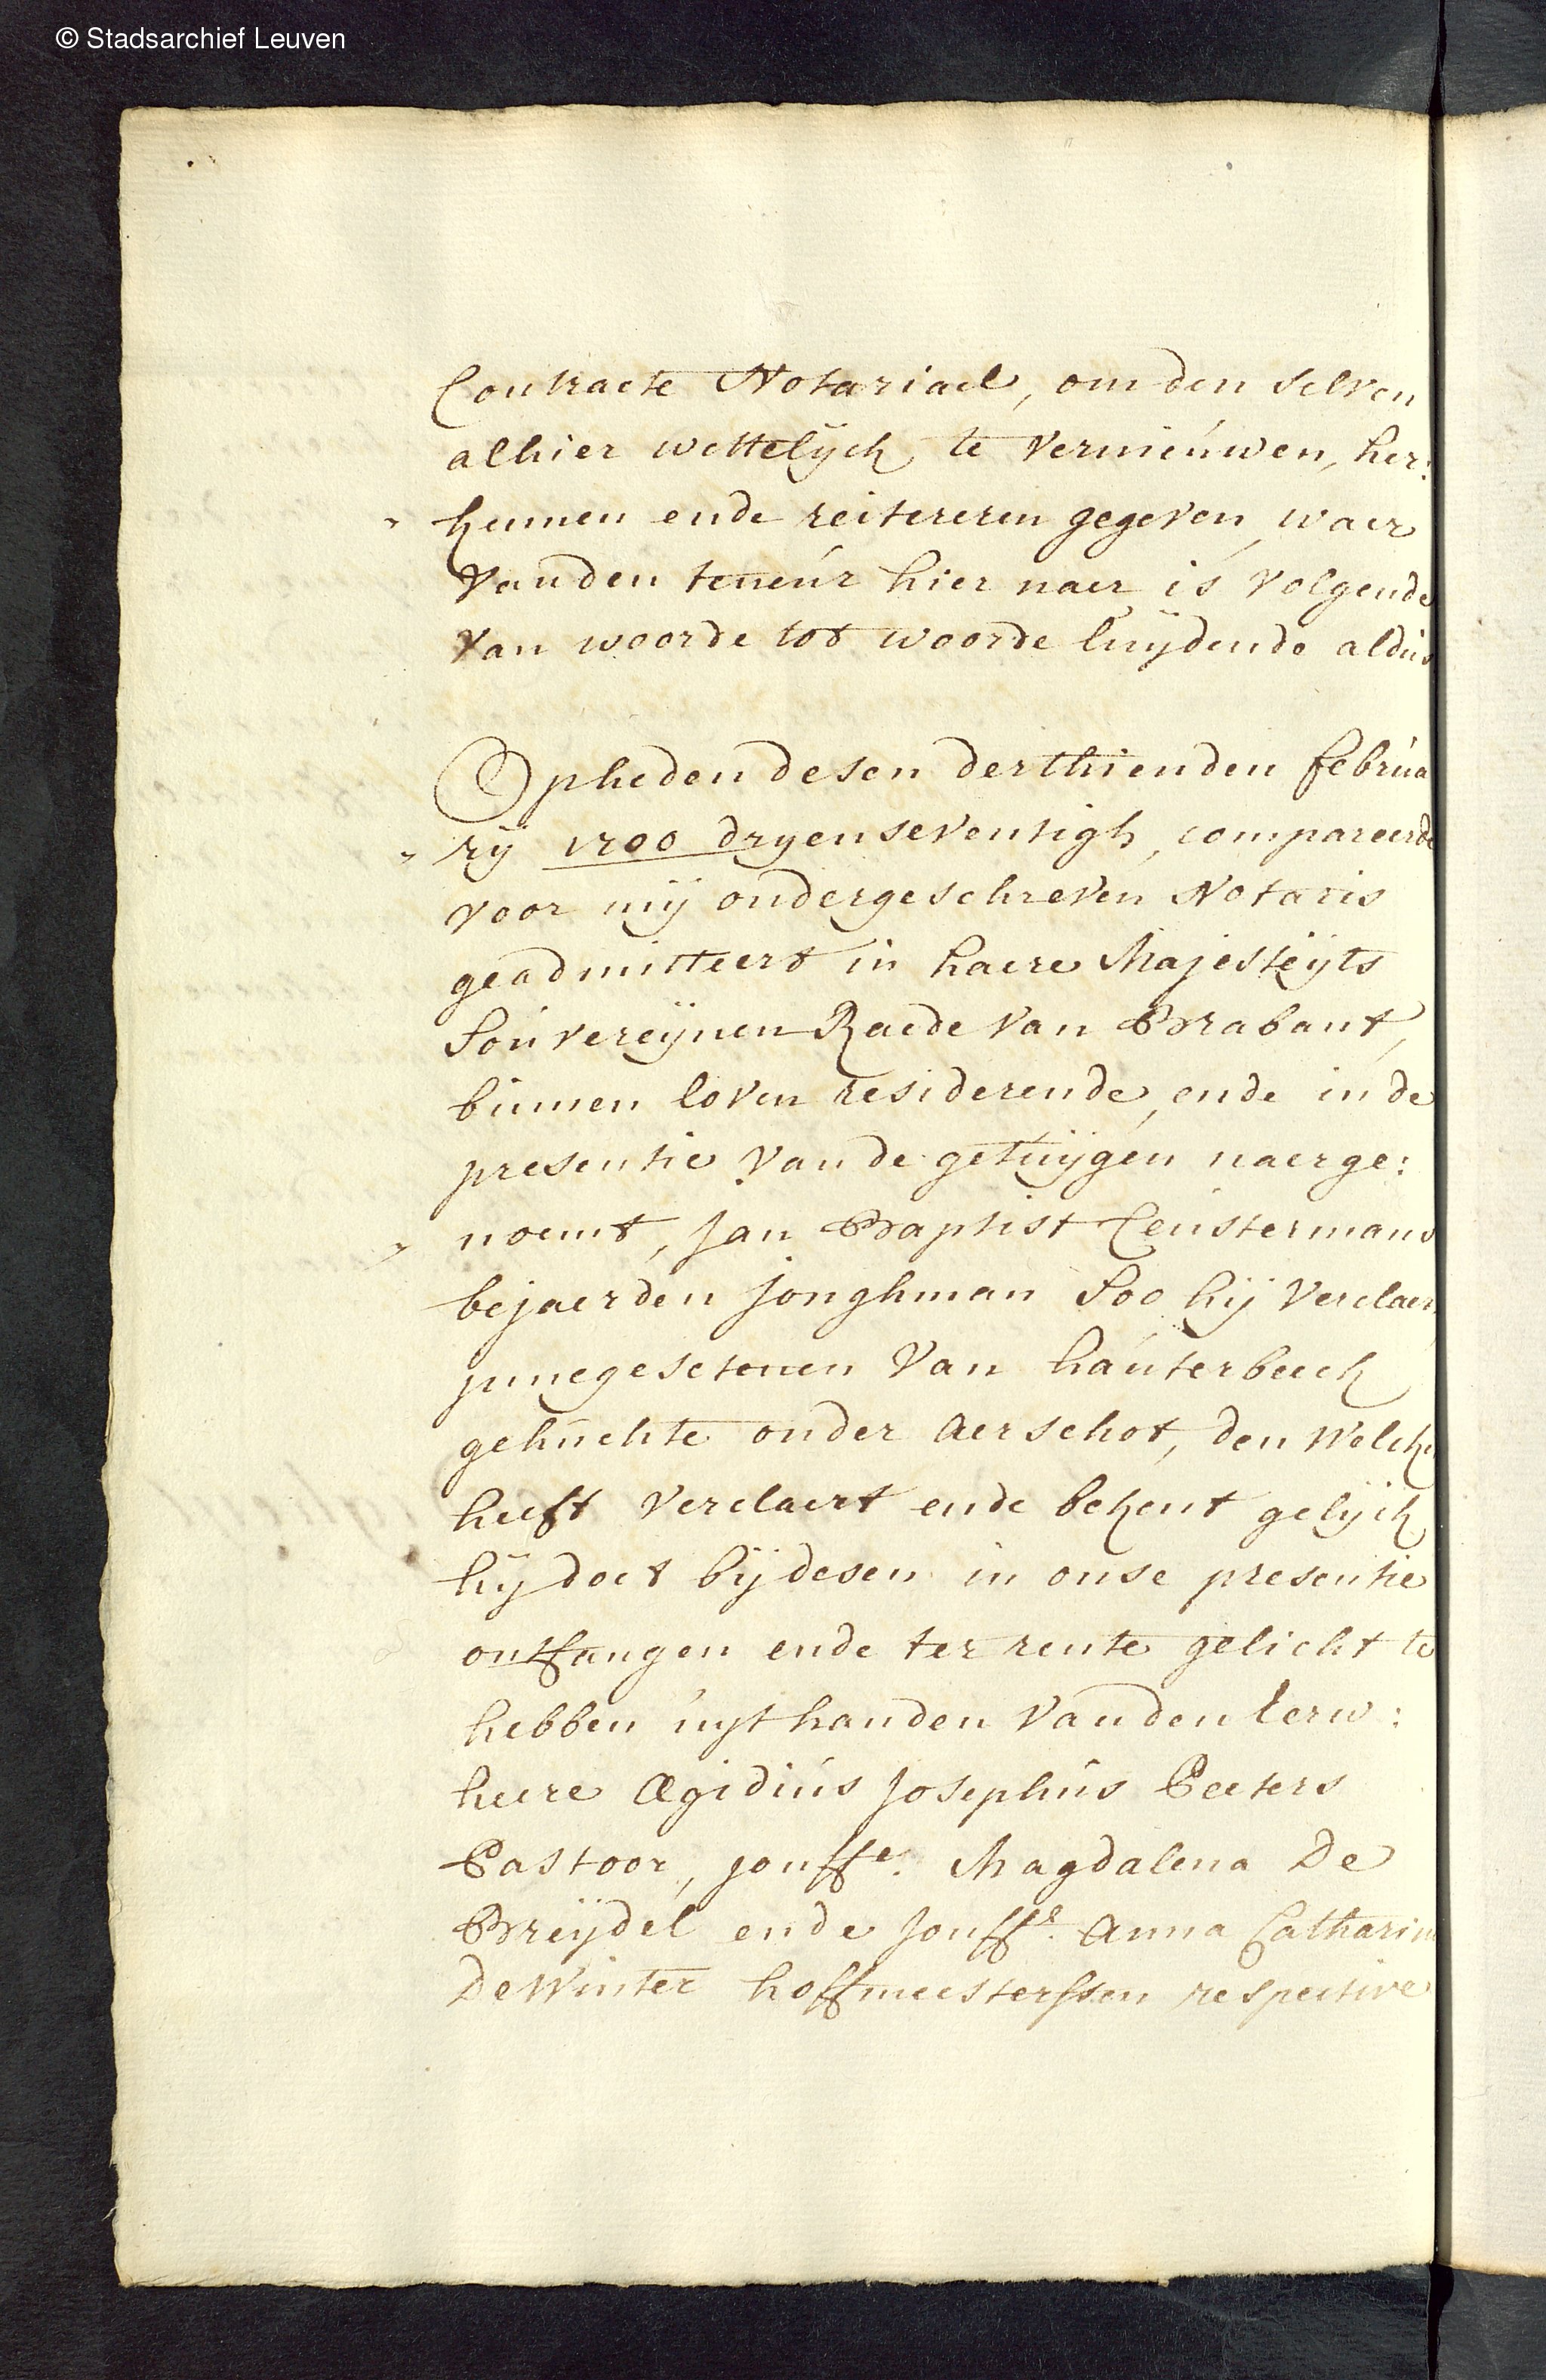 © Stadsarchief Leuven
Contracte Notariael, om den selven
alhier wettelijck te vernieuwen, her:
kennen ende reitereren gegeven, waer
van den teneur hier naer is volgende
van woorde tot woorde luijdende aldus
Opheden desen derthienden februa
rij 1700 dryenseventigh, compareerde
voor mij ondergeschreven Notaris
geadmitteert in haere Majesteijts
Souvereijnen Raede van Brabant,
binnen loven residerende, ende in de
presentie van de getuijgen naerge:
noemt, Jan Baptist Ceustermans
bejaerden jonghman soo hij verclaer
innegesetenen van hauterbeeck
gehuchte onder Aerschot, den welcke
heeft verclaert ende bekent gelijck
hij doet bij desen in onse presentie
ontfangen ende ter rente gelicht te
hebben uijt handen van den Eerw:
heere Ægidius Josephus Peeters
Pastoor, jouffe. Magdalena De
Breijdel ende Jouffe. Anna Catharina
De Winter hoffmeesterssen respective